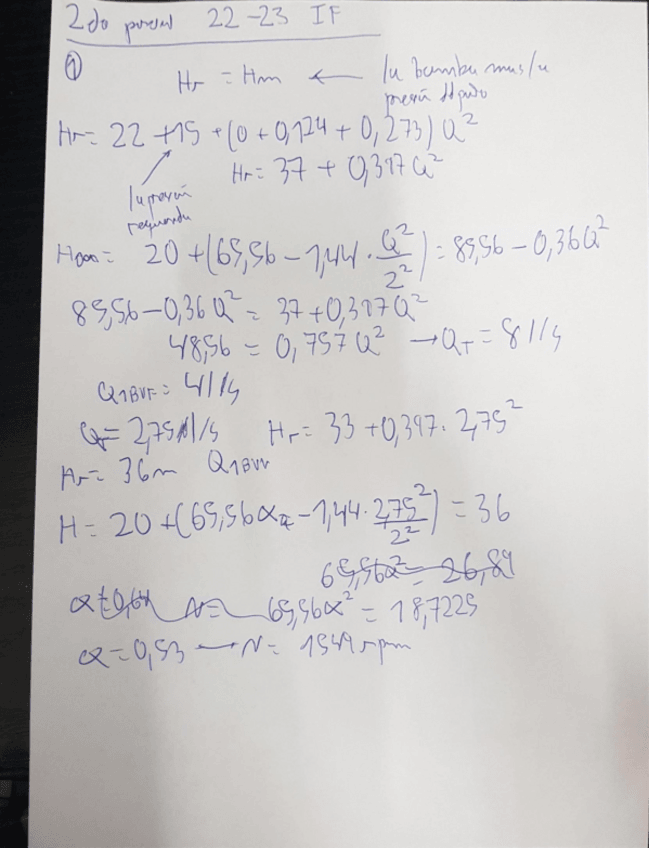 2do parcial 22-23 IF
①
Hr = Hm ← la bomba mas la
presión
Hr= 22 +15 +(0 + 0,124 + 0,273) Q²
Hr= 37 + 0,397 Q²
la presión
requerida
20 +(65,56 - 1,44 · Q²/2²) = 85,56 - 0,36Q²
85,56 - 0,36 Q² = 37 + 0,397Q²
48,56 = 0,757 Q² → QT = 8 l/s
Q1BVF = 4 l/s
2,75 l/s Hr= 33 + 0,397 · 2,75²
Hr= 36m Q1BVV
H = 20 +(65,56α² - 1,44 · 2,75²/2²) = 36
65,56α² = 26,89
α=0,64 N= 65,56α² = 18,7225
α=0,53 → N= 1549 rpm